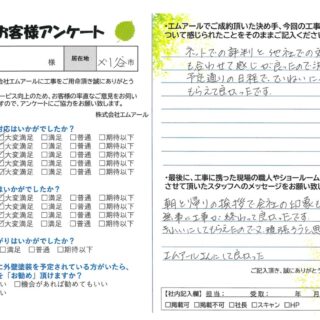 お客様アンケート
様
居在地
市
会社エムアールに工事をご用命頂き誠にありがとう
ービス向上のため、お客様の率直なご意見をお伺い
すので、アンケートにご協力をお願い致します。
株式会社エムアール
対応はいかがでしたか？
大変満足 □満足 □普通 □期待以下
大変満足 □満足 □普通 □期待以下
大変満足 □満足 □普通 □期待以下
大変満足 □満足 □普通 □期待以下
はいかがでしたか？
大変満足 □満足 □普通 □期待以下
大変満足 □満足 □普通 □期待以下
大変満足 □満足 □普通 □期待以下
大変満足 □満足 □普通 □期待以下
がりはいかがでしたか？
□満足 □普通 □期待以下
に外壁塗装を予定されている方がいたら、
を「お勧め」頂けますか？
い □機会があれば勧めてもいい
・エムアールでご成約頂いた決め手、今回の工事
ついて感じられたことをそのままご記入ください
ネットでの評判と他社での
も合わせて感じが良かったので決
予定通りの日程で、ていねいに
もらえて良かったです。
・最後に、工事に携った現場の職人やショールーム
させて頂いたスタッフへのメッセージをお願い致し
朝と帰りの挨拶で会社の印象
無事に工事が終わって良かったです。
きれいにしてもらえたので又、頑張ろうと思
エムアールさんにして良かった
ご記入頂き、誠にありがとう
【社内記入欄】担当： 受取： 年 月
□掲載可 □掲載不可 □社長 □スキャン □HP